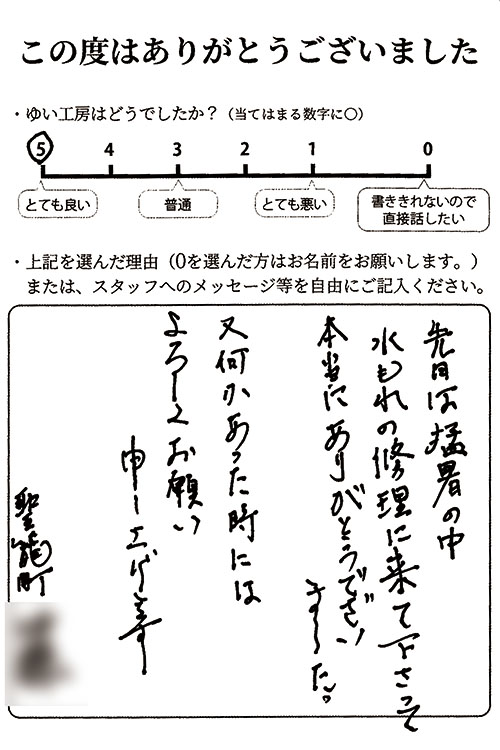 この度はありがとうございました
・ゆい工房はどうでしたか？（当てはまる数字に〇）
5 4 3 2 1 0
とても良い 普通 とても悪い 書ききれないので
直接話したい
・上記を選んだ理由（0を選んだ方はお名前をお願いします。）
または、スタッフへのメッセージ等を自由にご記入ください。
先日は猛暑の中
水もれの修理に来て下さって
本当にありがとうござい
ました。
又何かあった時には
よろしくお願い
申し上げます
聖籠町